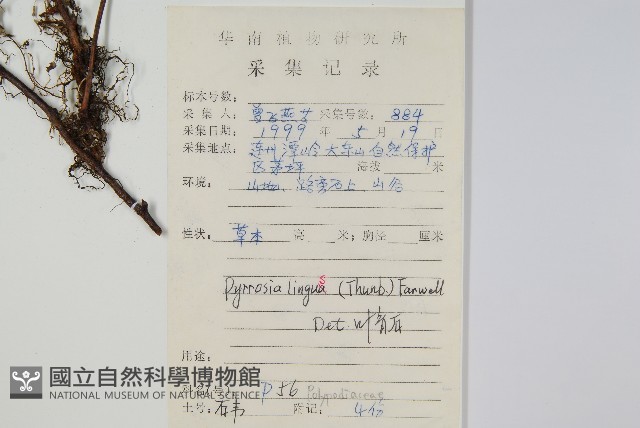 华南植物研究所
采集记录
标本号数：
采集人： 采集号数： 884
采集日期： 1999 年 5 月 19 日
采集地点： 连州潭岭大东山自然保护
区 海拔 米
环境： 山地、路旁石上、山谷
性状： 草本 高 米；胸径 厘米
Pyrrosia lingua (Thunb.) Farwell
Det. 叶育石
用途：
國立自然科學博物館
NATIONAL MUSEUM OF NATURAL SCIENCE
P56 Polypodiaceae
土名： 石韦 附记： 4份